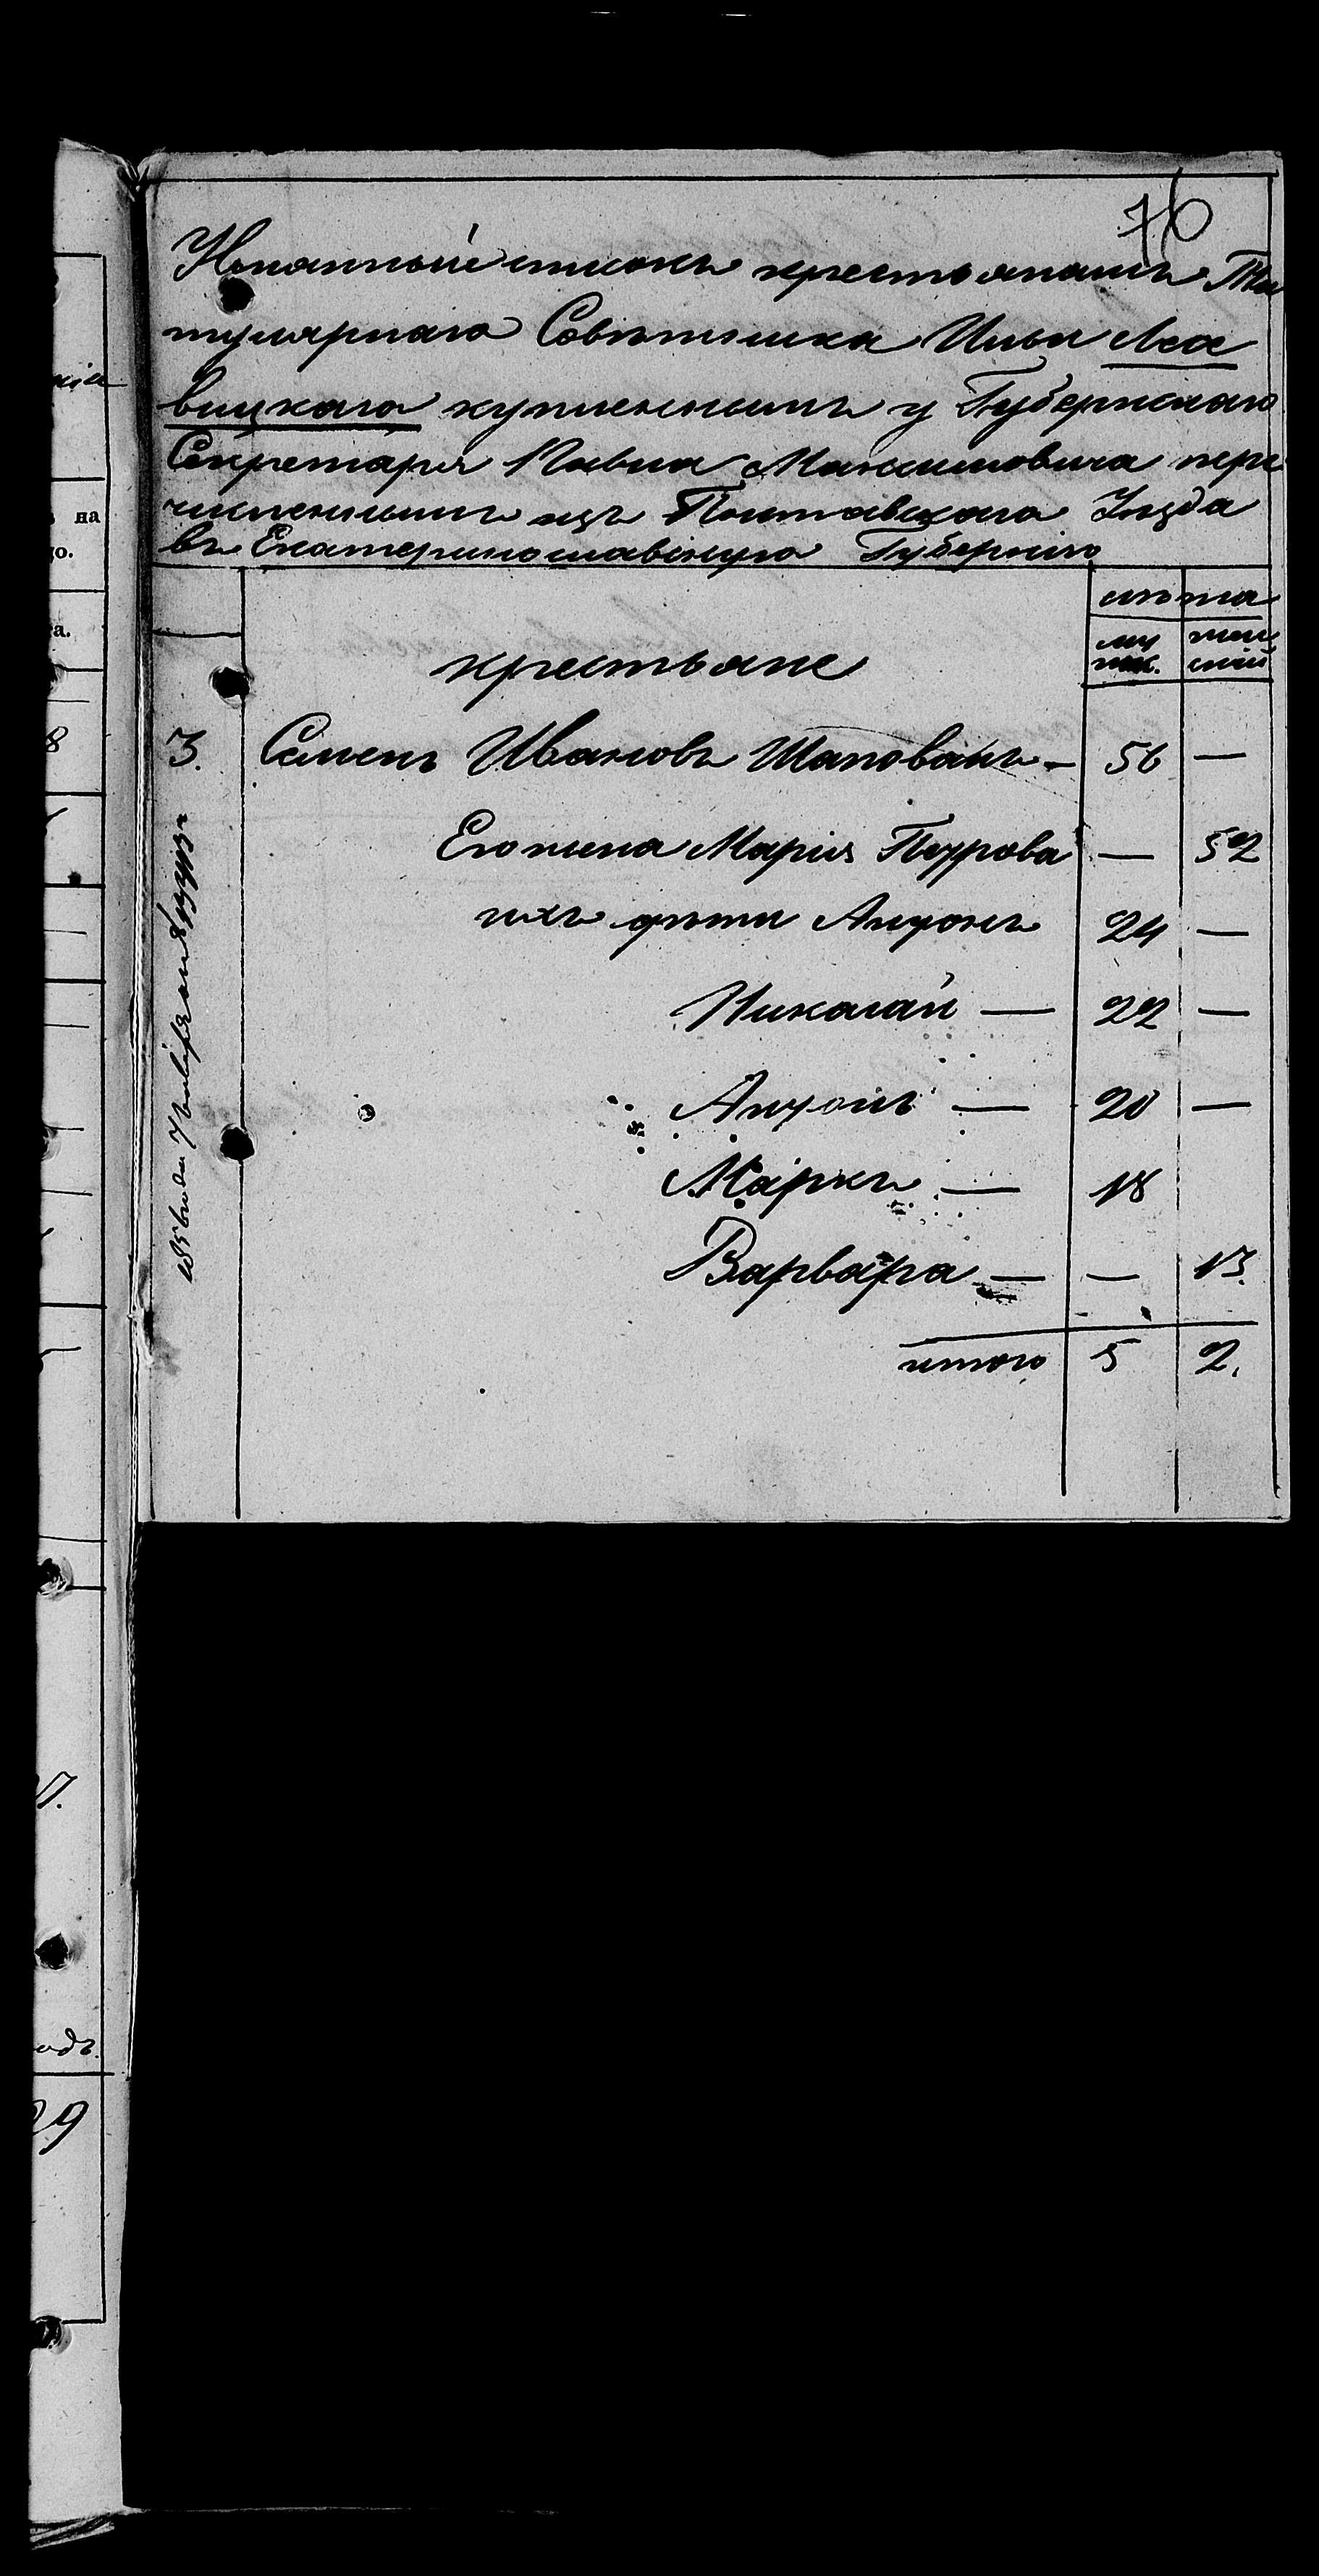 76
Именный списокъ крестьянамъ Ти
тулярнаго Совѣтника Ильи Лео
вицкаго купленнымъ у Губернскаго
Секретаря Павла Максимовича пере
численнымъ изъ Полтавскаго Уѣзда
въ Екатеринославскую Губернію
лѣта
крестьяне
му жск. жен скій
3. Семенъ Ивановъ Шаповалъ — 56 —
Его жена Марія Петрова — 52
ихъ дѣти Антонъ 24 —
Николай — 22 —
Антонъ — 20 —
Маркъ — 18
Варвара — — 13.
итого 5 2.
кія
на
го.
а.
8
7.
одъ.
29